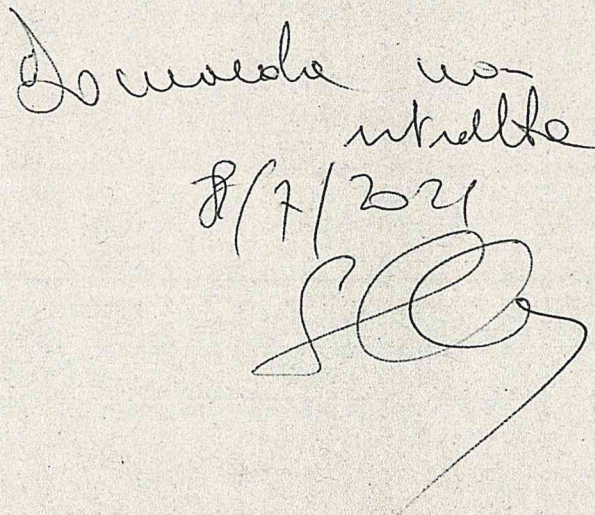 Domanda non
estratta
8/7/2021